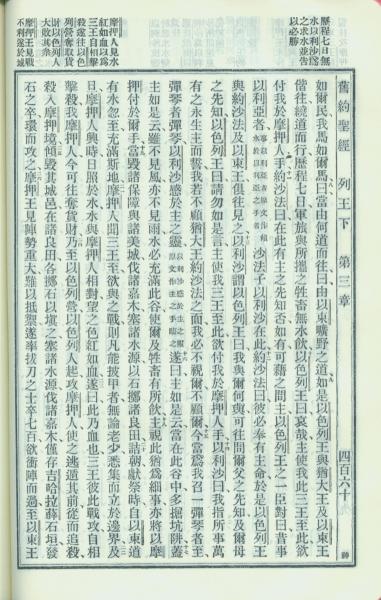 歷程七日無
水以利沙爲
之求水並告
以必勝
摩押人見水
紅如血以爲
三王自相擊
殺遂往以色
列營奪取貨
財以色列
大敗其衆
不利遂於城
舊約聖經 列王下 第三章 四百六十
如爾民我馬如爾馬曰當由何道而往曰由以東曠野之道如是以色列王與猶大王及以東王
偕往繞道而行歷程七日軍旅與所攜之牲畜無水飲以色列王曰哀哉主使我此三王至此欲
付我於摩押人手約沙法曰在此有主之先知否如有可藉之問主以色列王之一臣對曰昔事
以利亞者沙法子以利沙在此約沙法曰彼必奉有主命於是以色列王
與約沙法及以東王俱往見之以利沙謂以色列王曰我與爾何與可往問爾父之先知及爾母
之先知以色列王曰請勿如是言主使我三王至此欲付我於摩押人手以利沙曰我指所事萬
有之永生主而誓我若不顧猶大王約沙法之面我必不視爾不顧爾今當爲我召一彈琴者至
彈琴者彈琴以利沙感於主之靈以利沙感於主之靈原文作主之手臨之遂曰主如是云當在此谷中多掘坑陂蓋
主如是云雖不見風亦不見雨水必充滿此谷使爾及牲畜有所飲主視此猶爲細事亦將以摩
押付於爾手當毀諸保障與諸美城伐諸嘉木塞諸水源以石擲諸良田詰朝獻祭時自以東道
有水忽至充滿斯地摩押人聞三王至欲與之戰則凡能披甲者無論老少悉集而立於邊界及
日摩押人興時日照於水水與摩押人相對望之色紅如血遂曰此乃血也三王彼此戰攻自相
擊殺我摩押人今可往奪貨財乃至以色列營以色列人起攻摩押人使之逃遁其前從而追殺
殺入摩押境傾毀其城邑在諸良田各擲石以塡之塞諸水源伐諸嘉木僅存吉哈拉薛石垣發
石之卒環而攻之摩押王見陣勢重大難以抵禦遂率拔刀之士卒七百欲衝陣而過至以東王